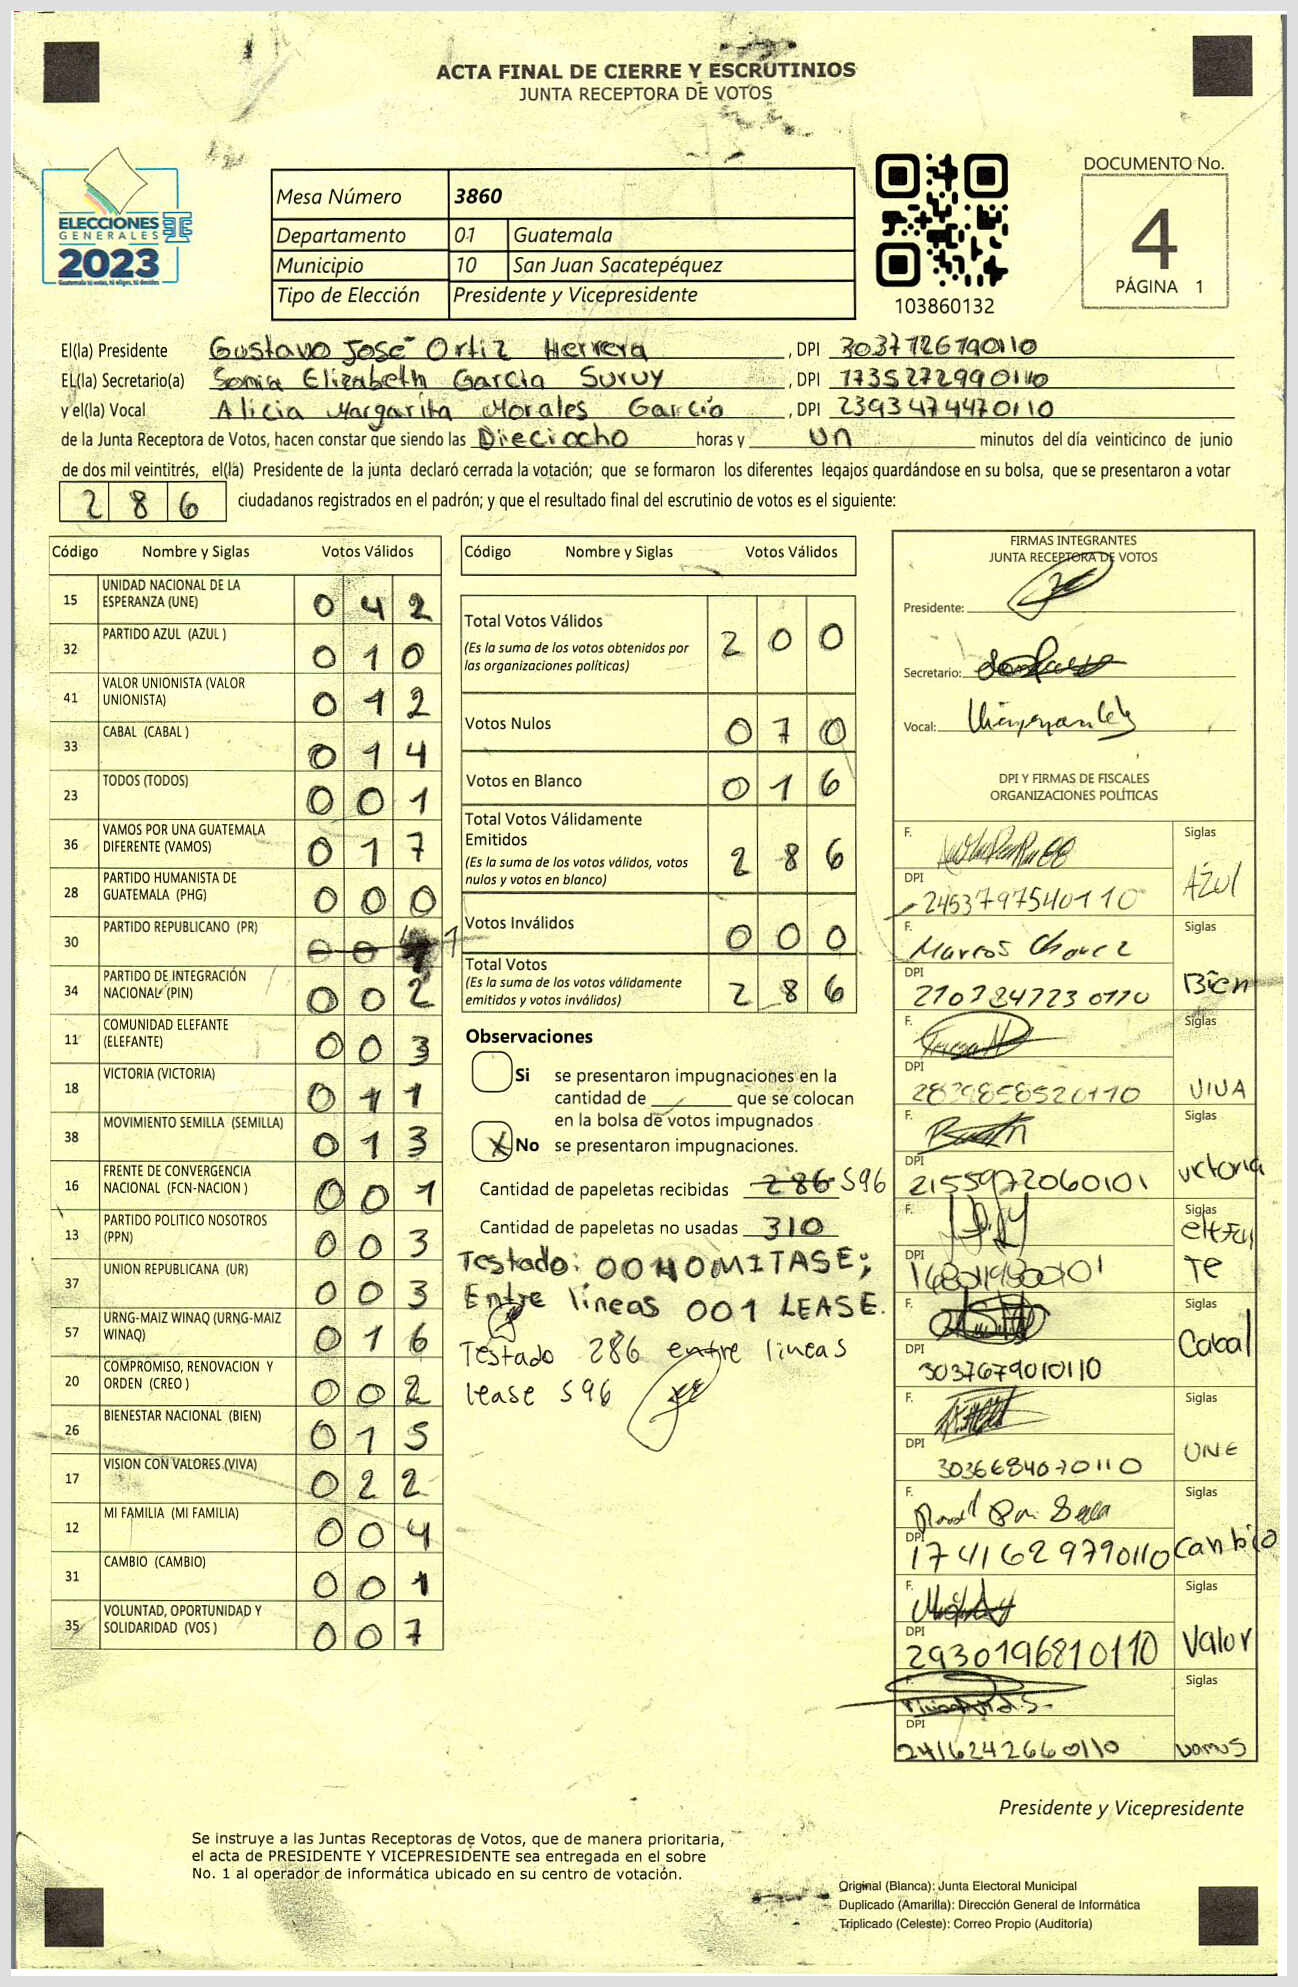 ACTA FINAL DE CIERRE Y ESCRUTINIOS
JUNTA RECEPTORA DE VOTOS
ELECCIONES
GENERALES
2023
Guatemala tú votas, tú eliges, tú decides
Mesa Número 3860
Departamento 01 Guatemala
Municipio 10 San Juan Sacatepéquez
Tipo de Elección Presidente y Vicepresidente
103860132
DOCUMENTO No.
4
PÁGINA 1
El(la) Presidente Gustavo José Ortiz Herrera, DPI
EL(la) Secretario(a) Sonia Elizabeth García Suruy, DPI 1735272990110
y el(la) Vocal Alicia Margarita Morales García, DPI 2393474470110
de la Junta Receptora de Votos, hacen constar que siendo las Dieciocho horas y un minutos del día veinticinco de junio
de dos mil veintitrés, el(la) Presidente de la junta declaró cerrada la votación; que se formaron los diferentes legajos guardándose en su bolsa, que se presentaron a votar
286 ciudadanos registrados en el padrón; y que el resultado final del escrutinio de votos es el siguiente:
Código Nombre y Siglas Votos Válidos
15 UNIDAD NACIONAL DE LA ESPERANZA (UNE) 042
32 PARTIDO AZUL (AZUL ) 010
41 VALOR UNIONISTA (VALOR UNIONISTA) 012
33 CABAL (CABAL ) 014
23 TODOS (TODOS) 001
36 VAMOS POR UNA GUATEMALA DIFERENTE (VAMOS) 017
28 PARTIDO HUMANISTA DE GUATEMALA (PHG) 000
30 PARTIDO REPUBLICANO (PR) 00 1
34 PARTIDO DE INTEGRACIÓN NACIONAL (PIN) 002
11 COMUNIDAD ELEFANTE (ELEFANTE) 003
18 VICTORIA (VICTORIA) 011
38 MOVIMIENTO SEMILLA (SEMILLA) 013
16 FRENTE DE CONVERGENCIA NACIONAL (FCN-NACION ) 001
13 PARTIDO POLITICO NOSOTROS (PPN) 003
37 UNION REPUBLICANA (UR) 003
57 URNG-MAIZ WINAQ (URNG-MAIZ WINAQ) 016
20 COMPROMISO, RENOVACION Y ORDEN (CREO ) 002
26 BIENESTAR NACIONAL (BIEN) 015
17 VISION CON VALORES (VIVA) 022
12 MI FAMILIA (MI FAMILIA) 004
31 CAMBIO (CAMBIO) 001
35 VOLUNTAD, OPORTUNIDAD Y SOLIDARIDAD (VOS ) 007
Código Nombre y Siglas Votos Válidos
Total Votos Válidos 200
(Es la suma de los votos obtenidos por
las organizaciones políticas)
Votos Nulos 070
Votos en Blanco 016
Total Votos Válidamente
Emitidos 286
(Es la suma de los votos válidos, votos
nulos y votos en blanco)
Votos Inválidos 000
Total Votos 286
(Es la suma de los votos válidamente
emitidos y votos inválidos)
Observaciones
Si se presentaron impugnaciones en la
cantidad de ________ que se colocan
en la bolsa de votos impugnados
X No se presentaron impugnaciones.
Cantidad de papeletas recibidas 286 596
Cantidad de papeletas no usadas 310
Testado: OMITASE;
Entre líneas 001 LEASE.
Testado 286 entre lineas
lease 596
FIRMAS INTEGRANTES
JUNTA RECEPTORA DE VOTOS
Presidente:
Secretario:
Vocal:
DPI Y FIRMAS DE FISCALES
ORGANIZACIONES POLÍTICAS
F. Siglas
DPI 2453797540110 AZUL
F. Marcos Chavez Siglas
DPI Bien
F. Siglas
DPI VIVA
F. Siglas
DPI 2155972060101 victoria
F. Siglas
DPI
F. Siglas
DPI 3037679010110 Cabal
F. Siglas
DPI 3036684070110 UNE
F. Siglas
DPI 1741629790110 Cambio
F. Siglas
DPI 2930196810110 Valor
F. Siglas
DPI 2416242660110 vamos
Presidente y Vicepresidente
Se instruye a las Juntas Receptoras de Votos, que de manera prioritaria,
el acta de PRESIDENTE Y VICEPRESIDENTE sea entregada en el sobre
No. 1 al operador de informática ubicado en su centro de votación.
Original (Blanca): Junta Electoral Municipal
Duplicado (Amarilla): Dirección General de Informática
Triplicado (Celeste): Correo Propio (Auditoría)